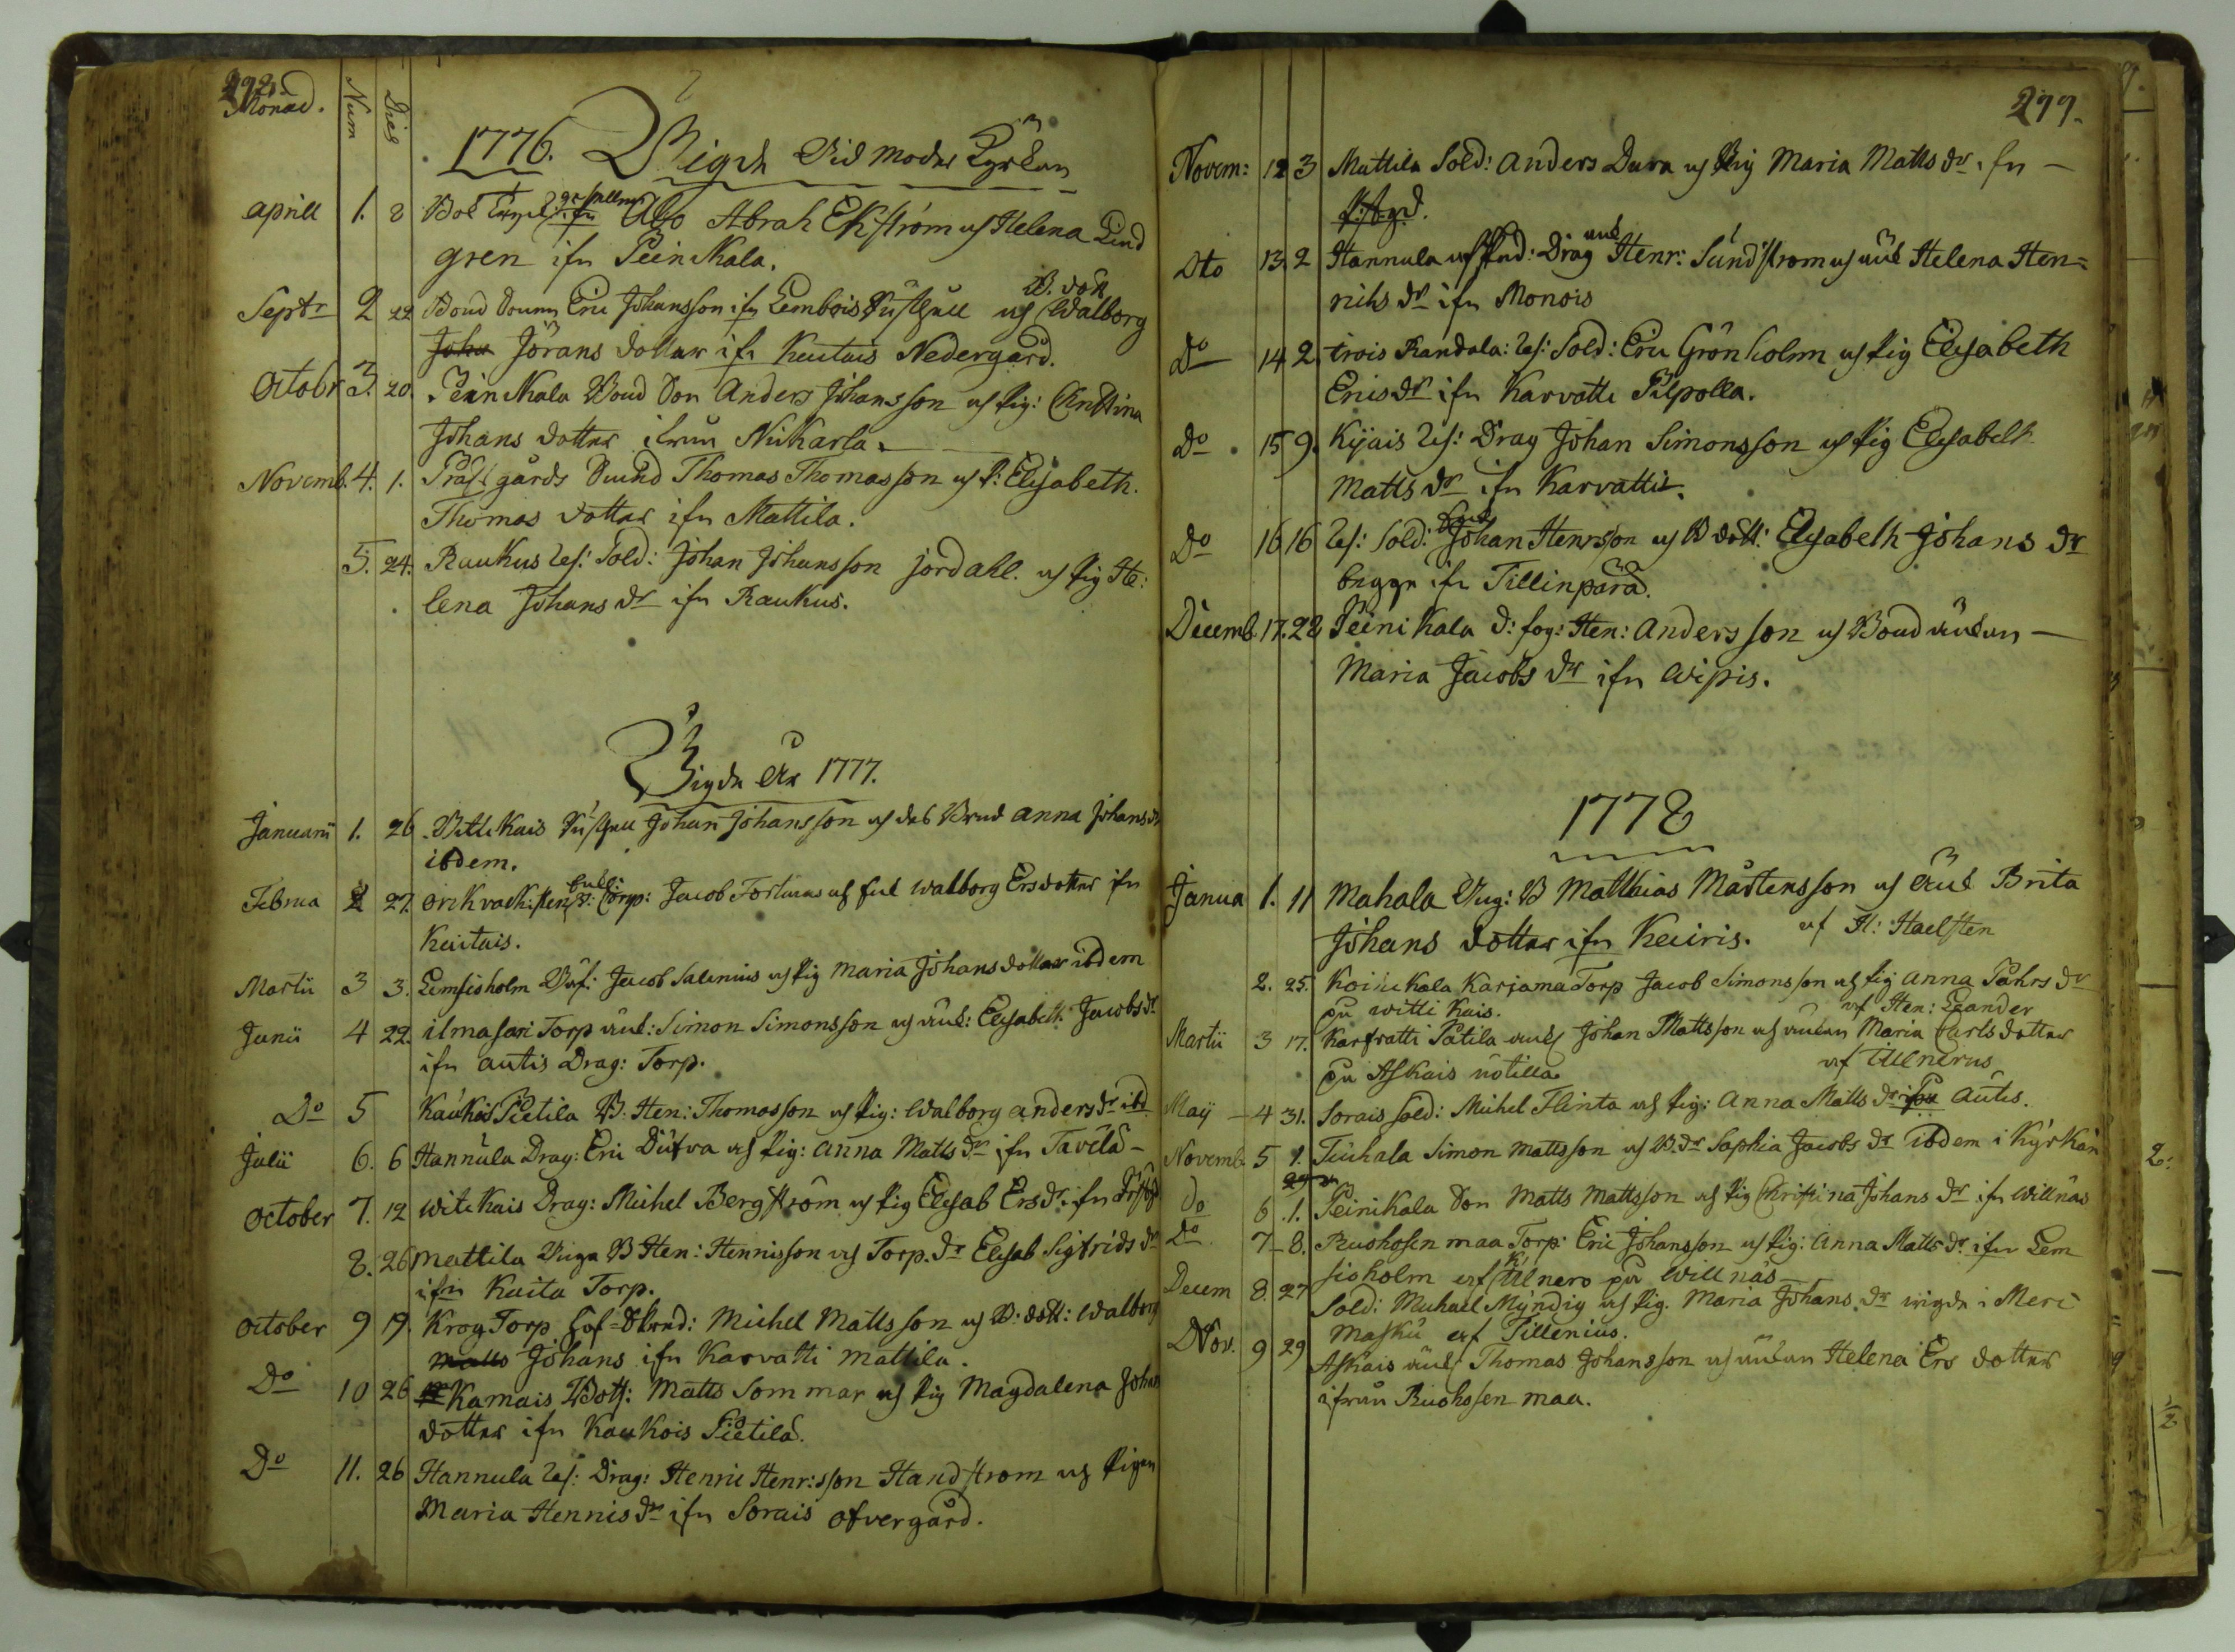 292.
Månad. Num Dies
1776. Wigde Wid moder Kyrkan
Aprill 1. 8 Bok Tryck: gesällen ifn Åbo Abrah Ekström och Helena Lind
gren ifn Peinikala.
Septr 2 22 Bond Sonen Eric Johansson ifn Lembois Rusthåll och B. dott Walborg
Joha Jörans dotter ifn Keutais Nedergård.
Octobr 3. 20. Peinikala Bond Son Anders Johansson och Pig: Christina
Johans dotter ifrån Nukarla.
Novemb. 4. 1. Prästgårds Dreng Thomas Thomasson och P: Elisabeth
Thomas dotter ifn Mattila.
5. 24. Raukus Res: Sold: Johan Johansson Jordahl. och Pig He:
lena Johans dr ifn Raukus.
Wigde År 1777.
Januarii 1. 26 Wittikais Rusthåll Johan Johansson och dess Brud Anna Johans dr
ibdem.
Februa 2 27. Corp: Jacob och Walborg Ersdotter ifn
Keutais.
Martii 3 3. Lemsisholm Jacob Salenius och Pig Maria Johansdotter ibdem
Junii 4 22. ilmasari Torp änk: Simon Simonsson och änk: Elisabeth Jacobs dr
ifn autis Drag: Torp.
Do 5 Kaukois Pietila B. Hen: Thomasson och Pig: Walborg Anders dr ibd
Julii 6. 6 Hannula Drag: Eric Dufva och Pig: Anna Matts dr ifn Tavela
October 7. 12 Witikais Drag: Michel Bergström och Pig Elisab Ersdr ifn
8. 26 Mattila Unga B Hen: Henrisson och Torp. dr Elisab Sigfrids dr
ifn Kaita Torp.
October 9 19. Krog Torp Michel Mattsson och B: dott: Walborg
Matts Johans ifn Karvatti Mattila.
Do 10 26 Kamais Båts: Matts Sommar och Pig Magdalena Johan
dotter ifn Kaukois Pietila.
Do 11. 26 Hannula Res: Drag: Henric Henr:sson Handstrom och Pigan
Maria Henrics dr ifn Sorais ofvergård.
299.
Novem: 12 3 Mattila Sold: Anders Dura och Pig Maria Matts dr ifn
Dto 13. 2 Hannula Drag Henr: Sundstrom och änk Helena Hen=
rihs dr ifn Monois
Do 14 2. Trois Randala: Res: Sold: Eric Grönholm och Pig Elisabeth
Erics dr ifn Karvatti Pilpolla.
Do 15 9. Kijais Res: Drag Johan Simonsson och Pig Elisabeth
Matts dr ifn Karvatti.
Do 16 16 Res: Sold: Johan Henrsson och B dott: Elisabeth Johans dr
begge ifn Tillinpärä.
Decemb. 17. 28 Peinikala Hen: Andersson och Bond änkan
Maria Jacobs dr ifn Wipis.
1778
Janua 1. 11 Mahala Ung: B Matthias Mårtensson och Änk Brita
Johans dotter ifn Keiris. af H: Haelsten
2. 25. Koinikala Karjama Torp Jacob Simonsson och Pig Anna Påhrs dr
på Wittikais. af Hen: Leander
Martii 3 17. Karfvatti Patila Johan Mattsson och änkan Maria Carls dotter
på Askais Uotilla af Ullnerus
Maij 4 31. Sorais Sold: Michel Flinta och Pig: Anna Matts dr Autis.
Novemb. 5 1. Simon Mattsson och B. dr Saphia Jacobs dr ibdem i Kyrkan
Do 6 1. Peinikala Son Matts Mattsson och Pig Christina Johans dr ifn Willnäs
Do 7 8. Ruohosen maa Torp: Eric Johansson och Pig: Anna Matts dr ifn Lem
sisholm af Ulnero på Willnäs
Decem 8. 27 Sold: Michael Myndig och Pig. Maria Johans dr wigde i Meri
masku af Tillenius.
Nov. 9 29 Askais änkl: Thomas Johansson och änkan Helena Ers dotter
ifrån Ruohosen maa.